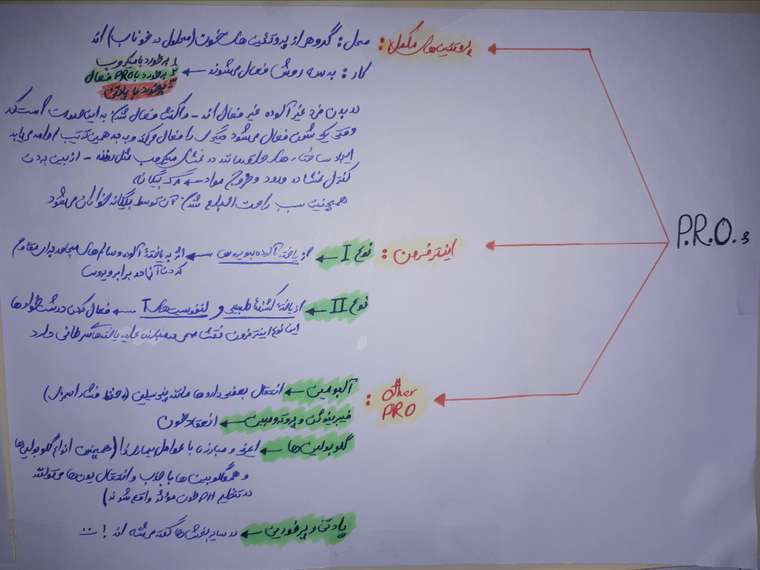 P.R.O.s
پروتئین های مکمل: محل: گروهی از پروتئین های خون (محلول در خوناب) اند
کار: به سه روش فعال می‌شوند ← ۱ برخورد با میکروب
۲ برخورد با PRO فعال
۳ برخورد با پادتن
در بدن فرد غیر آلوده غیر فعال اند - واکنش فعال شدن: به این صورت است که
وقتی یکی شون فعال می‌شود دیگری را فعال می‌کند و به همین ترتیب ادامه می‌یابد
ایجاد ساختار های حلقه مانند در غشای میکروب مثل روزنه - از بین بردن
کنترل غشا در ورود و خروج مواد ← مرگ بیگانه
همچنین سبب راحت انجام شدن آن توسط بیگانه خواران می‌شود
اینترفرون: نوع I ← از یاخته آلوده به ویروس ← اثر به یاخته آلوده و سالم های مجاور برای مقاوم
کردن آنها در برابر ویروس
نوع II ← از یاخته کشندهٔ طبیعی و لنفوسیت های T ← فعال کردن درشت خوارها
این نوع اینترفرون نقش مهمی در مبارزه علیه یاخته‌های سرطانی دارد
other PRO: آلبومین ← انتقال بعضی داروها مانند پنی‌سیلین (و حفظ فشار اسمزی)
فیبرینوژن و پروترومبین ← انعقاد خون
گلوبولین ها ← ایمنی و مبارزه با عوامل بیماری زا (همچنین انواع گلوبولین‌ها
و هموگلوبین ها با جذب و انتقال یون‌ها می‌توانند
در تنظیم PH خون موثر واقع شوند)
پادتن و پرفورین ← در سایر بخش‌ها گفته شده اند!